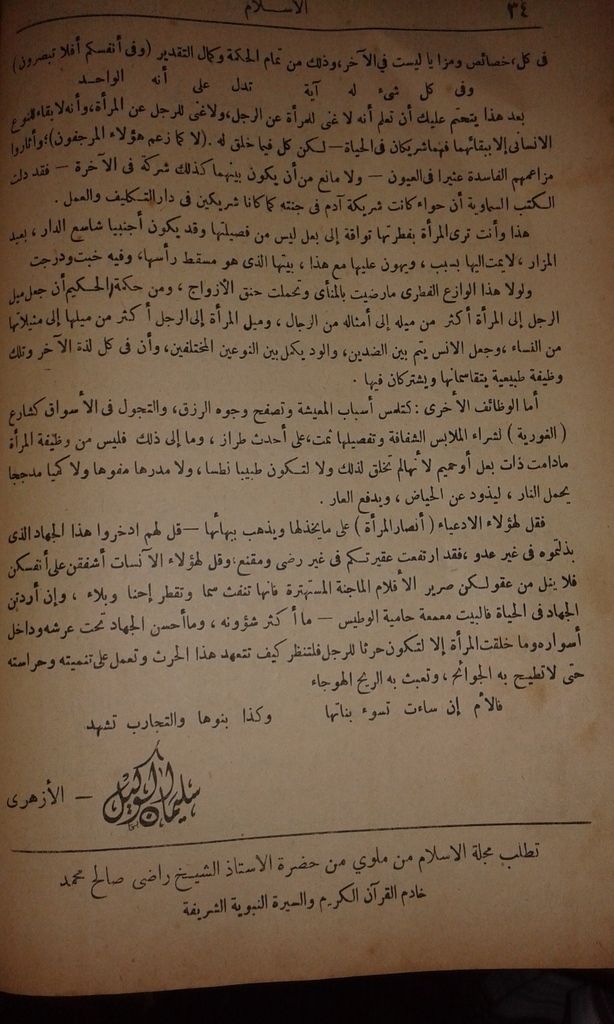 ٣٤
الاسلام
فى كل، خصائص ومزايا ليست فى الآخر، وذلك من تمام الحكمة وكمال التقدير (وفى أنفسكم أفلا تبصرون)
وفى كل شىء له آية تدل على أنه الواحد
بعد هذا يتحتم عليك أن تعلم أنه لا غنى للمرأة عن الرجل، ولا غنى للرجل عن المرأة، وأنه لا بقاء للنوع
الانسانى إلا ببقائهما فهما شريكان فى الحياة — لكن كل فيما خلق له . (لا كما زعم هؤلاء المرجفون) وأثاروا
مزاعمهم الفاسدة عثيرا فى العيون — ولا مانع من أن يكون بينهما كذلك شركة فى الآخرة — فقد دلت
الكتب السماوية أن حواء كانت شريكة آدم فى جنته كما كانا شريكين فى دار التكليف والعمل .
هذا وأنت ترى المرأة بفطرتها تواقة إلى بعل ليس من فصيلتها وقد يكون أجنبيا شاسع الدار ، بعيد
المزار ، لا يمت اليها بسبب ، ويهون عليها مع هذا ، بيتها الذى هو مسقط رأسها، وفيه خبت ودرجت
ولولا هذا الوازع الفطرى ما رضيت بالمنأى وتحملت حنق الأزواج ، ومن حكمة الحكيم أن جعل ميل
الرجل إلى المرأة أكثر من ميله إلى أمثاله من الرجال ، وميل المرأة إلى الرجل أكثر من ميلها إلى مثيلاتها
من النساء ، وجعل الانس يتم بين الضدين، والود يكمل بين النوعين المختلفين، وأن فى كل لذة الآخر وتلك
وظيفة طبيعية يتقاسمانها ويشتركان فيها .
أما الوظائف الأخرى : كتلمس أسباب المعيشة وتصفح وجوه الرزق، والتجول فى الأسواق كشارع
( الغورية ) لشراء الملابس الشفافة وتفصيلها ثمت، على أحدث طراز ، وما إلى ذلك فليس من وظيفة المرأة
مادامت ذات بعل أو حميم لأنها لم تخلق لذلك ولا لتكون طبيبا نطسا، ولا مدرها مفوها ولا كميا مدججا
يحمل النار ، ليذود عن الحياض ، ويدفع العار .
فقل لهؤلاء الادعياء ( أنصار المرأة ) على ما يخذلها ويذهب ببهائها — قل لهم ادخروا هذا الجهاد الذى
بذلتموه فى غير عدو ، فقد ارتفعت عقيرتكم فى غير رضى ومقنع، وقل لهؤلاء الآنسات أشفقن على أنفسكن
فلا ينل من عقولكن صرير الأقلام الماجنة المستهترة فانها تنفث سما وتقطر إحنا وبلاء ، وإن أردتن
الجهاد فى الحياة فالبيت معمعة حامية الوطيس — ما أكثر شؤونه ، وما أحسن الجهاد تحت عرشه وداخل
أسواره وما خلقت المرأة إلا لتكون حرثا للرجل فلتنظر كيف تتعهد هذا الحرث وتعمل على تنميته وحراسته
حتى لا تطيح به الجوائح ، وتعبث به الريح الهوجاء
فالأم إن ساءت تسوء بناتها وكذا بنوها والتجارب تشهد
سليمان الوكيل — الأزهرى
تطلب مجلة الاسلام من ملوي من حضرة الاستاذ الشيخ راضى صالح محمد
خادم القرآن الكريم والسيرة النبوية الشريفة